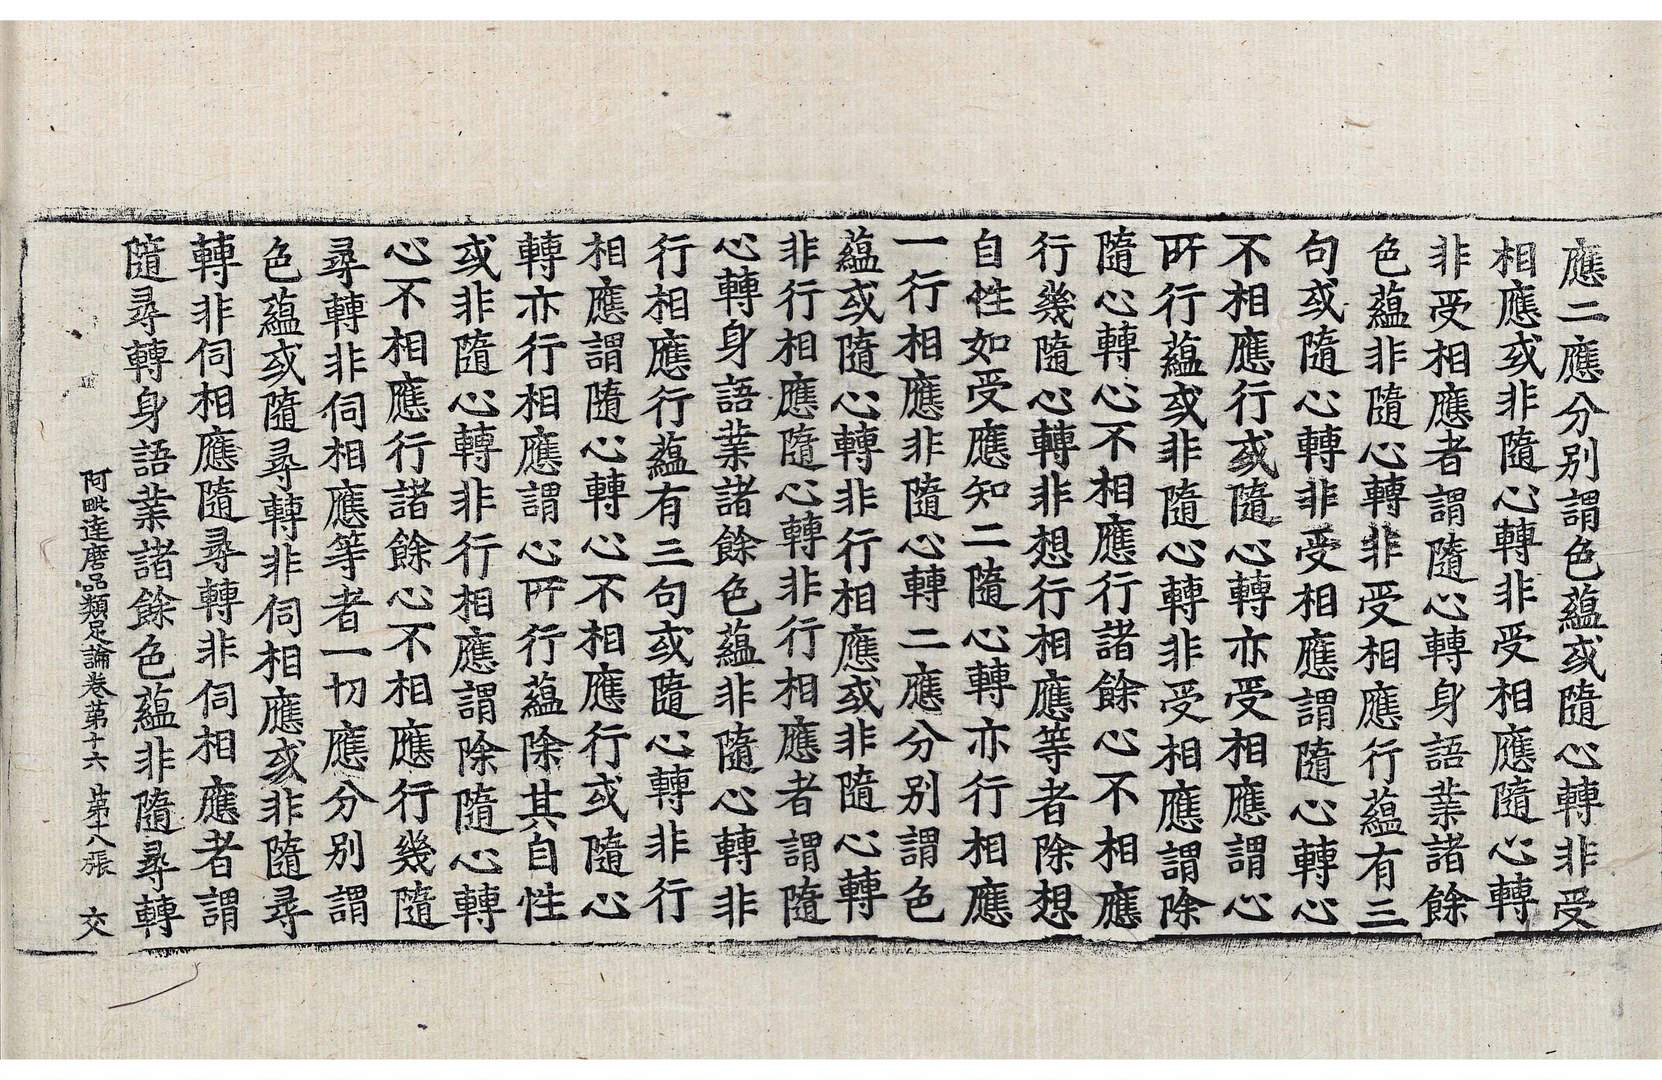 應二應分別謂色蘊或隨心轉非受
相應或非隨心轉非受相應隨心轉
非受相應者謂隨心轉身語業諸餘
色蘊非隨心轉非受相應行蘊有三
句或隨心轉非受相應謂隨心轉心
不相應行或隨心轉亦受相應謂心
所行蘊或非隨心轉非受相應謂除
隨心轉心不相應行諸餘心不相應
行幾隨心轉非想行相應等者除想
自性如受應知二隨心轉亦行相應
一行相應非隨心轉二應分別謂色
蘊或隨心轉非行相應或非隨心轉
非行相應隨心轉非行相應者謂隨
心轉身語業諸餘色蘊非隨心轉非
行相應行蘊有三句或隨心轉非行
相應謂隨心轉心不相應行或隨心
轉亦行相應謂心所行蘊除其自性
或非隨心轉非行相應謂除隨心轉
心不相應行諸餘心不相應行幾隨
尋轉非伺相應等者一切應分別謂
色蘊或隨尋轉非伺相應或非隨尋
轉非伺相應隨尋轉非伺相應者謂
隨尋轉身語業諸餘色蘊非隨尋轉
阿毗達磨品類足論卷第十六 第十八張 交